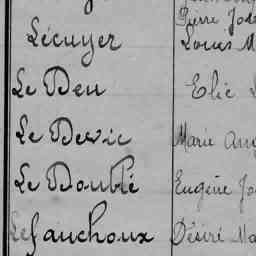 Pierre
Lécuyer Louis M
Le Deu Elie
Le Devic Marie Ang
Le Doublé Eugène Jo
Lefauchoux Désiré Ma